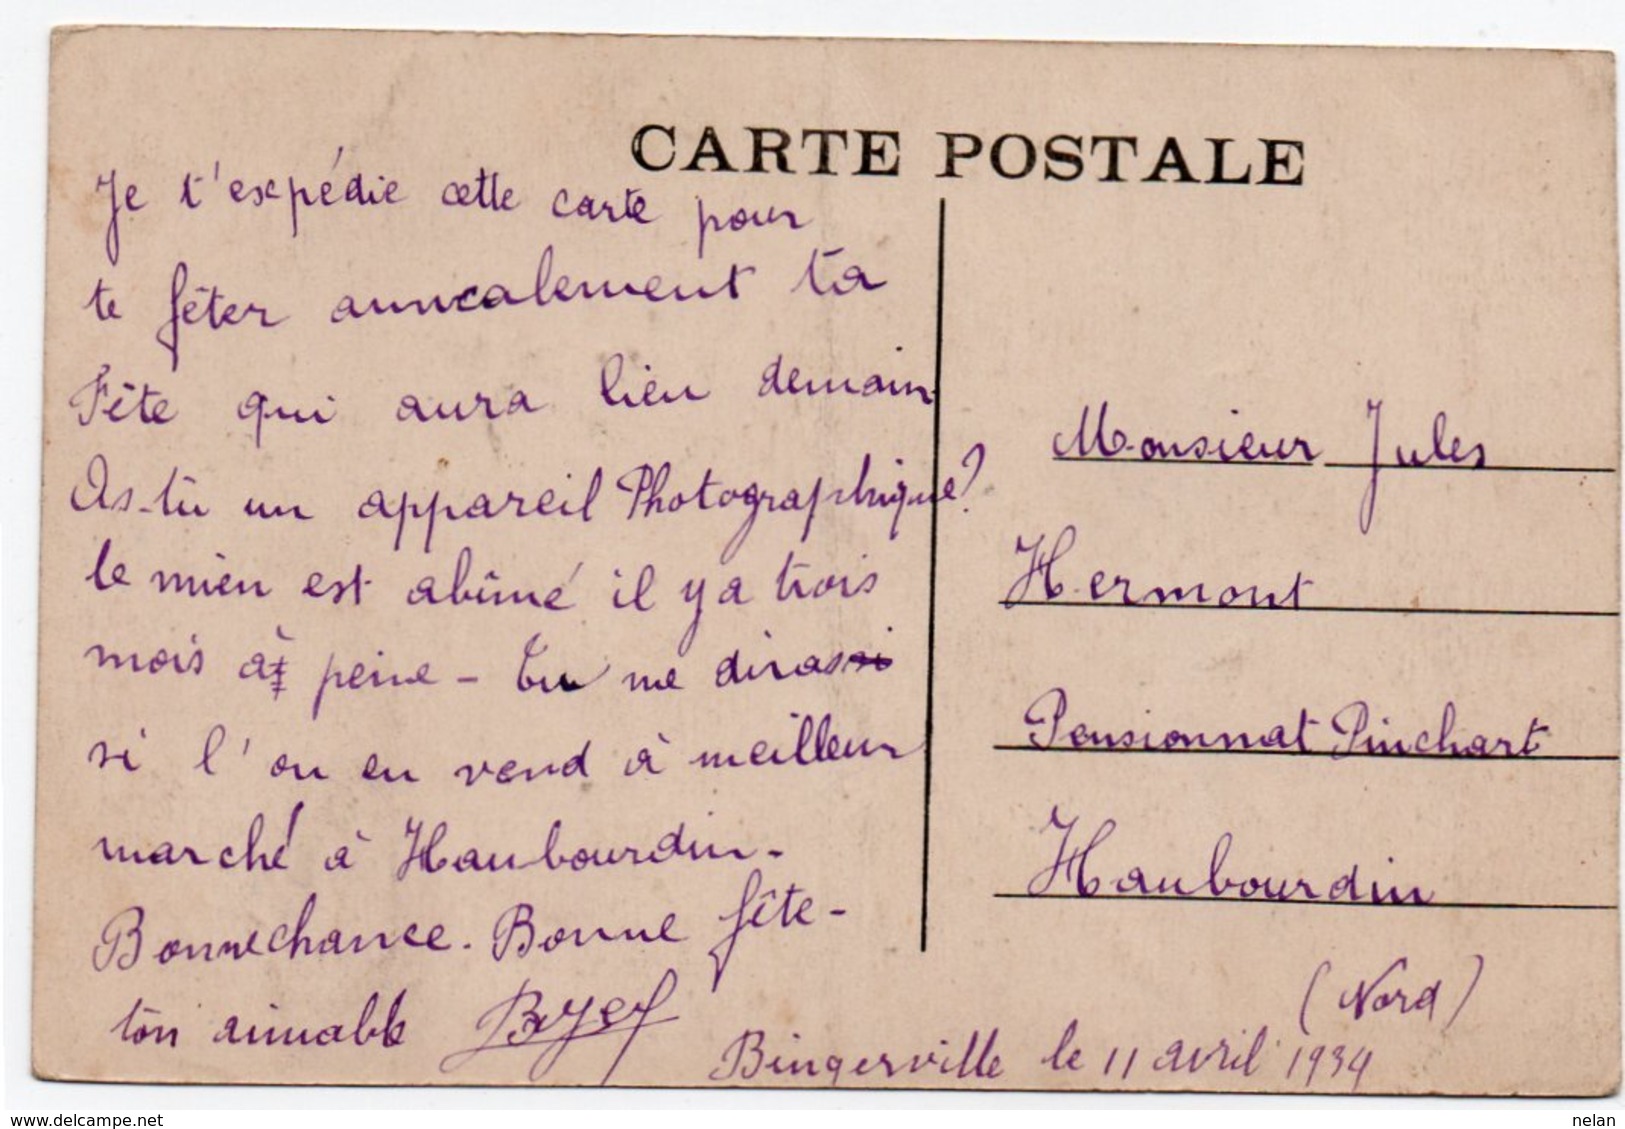 CARTE POSTALE
Je t'expédie cette carte pour
te fêter annualement ta
Fête qui aura lieu demain
As-tu un appareil Photographique?
le mien est abîmé il y a trois
mois à peine - tu me diras
si l'on en vend à meilleur
marché à Haubourdin -
Bonne chance. Bonne fête -
ton aimable
Bingerville le 11 avril 1934
Monsieur Jules
Hermont
Pensionnat Pinchart
Haubourdin
(Nord)
www.delcampe.net
nelan